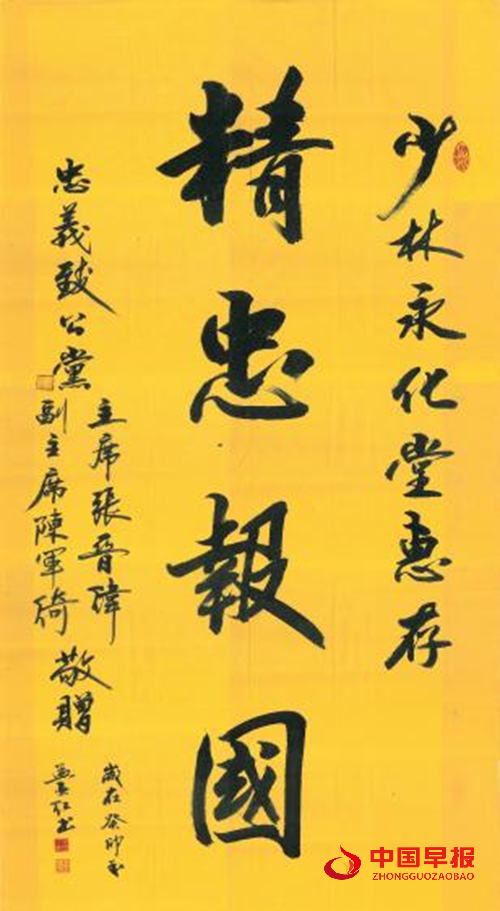 少林永化堂惠存
精忠報國
忠義致公黨
主席張晉瑋
副主席陳軍綺
敬贈
歲在癸卯
書
中国早报
ZHONGGUOZAOBAO